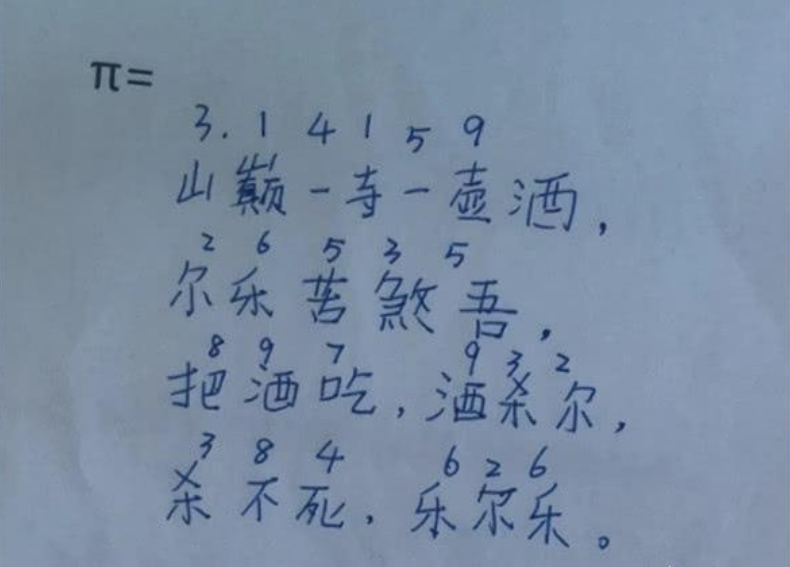 π=
3.14159
山巅一寺一壶酒，
26535
尔乐苦煞吾，
897 932
把酒吃，酒杀尔，
384 626
杀不死，乐尔乐。